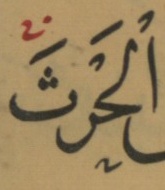 الْحَرْثَ